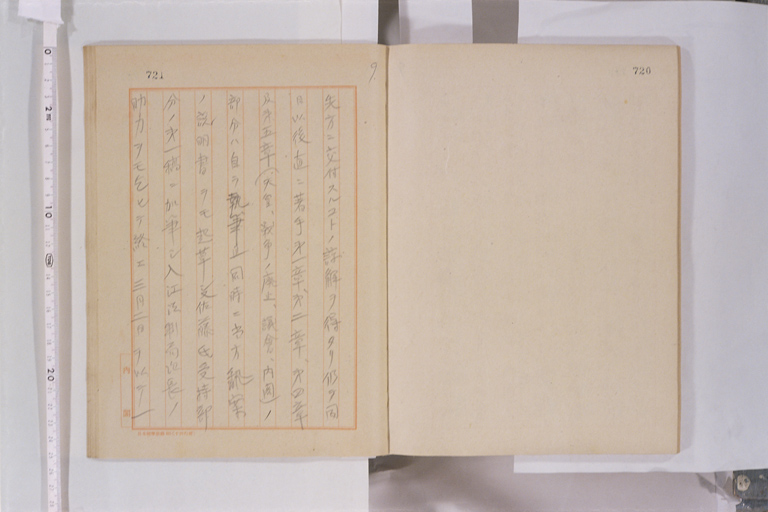 先方ニ交付スルコトノ諒解ヲ得タリ仍テ同
日以後直ニ著手第一章、第二章、第四章
及第五章(天皇、戦争ノ廃止、国会、内閣)ノ
部分ハ自ラ執筆シ同時ニ当方
ノ説明書ヲモ起草シ佐藤氏受持部
分ノ第一稿ニ加筆シ入江法制局次長ノ
助力ヲモ乞ヒテ終ニ三月二日ヲ以テ一
内閣
721
9
720
0
10
20